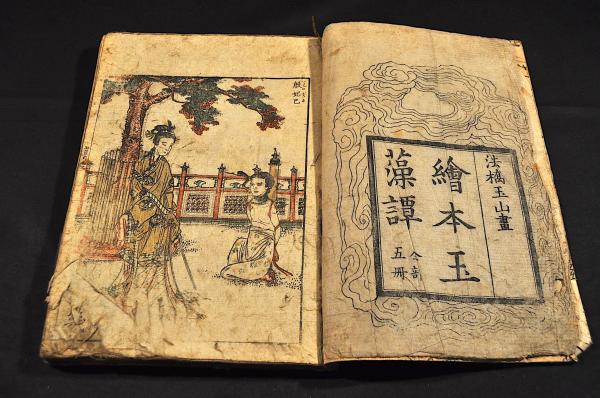 法橋玉山畫
繪本玉
藻譚
全部
五冊
殷妲己